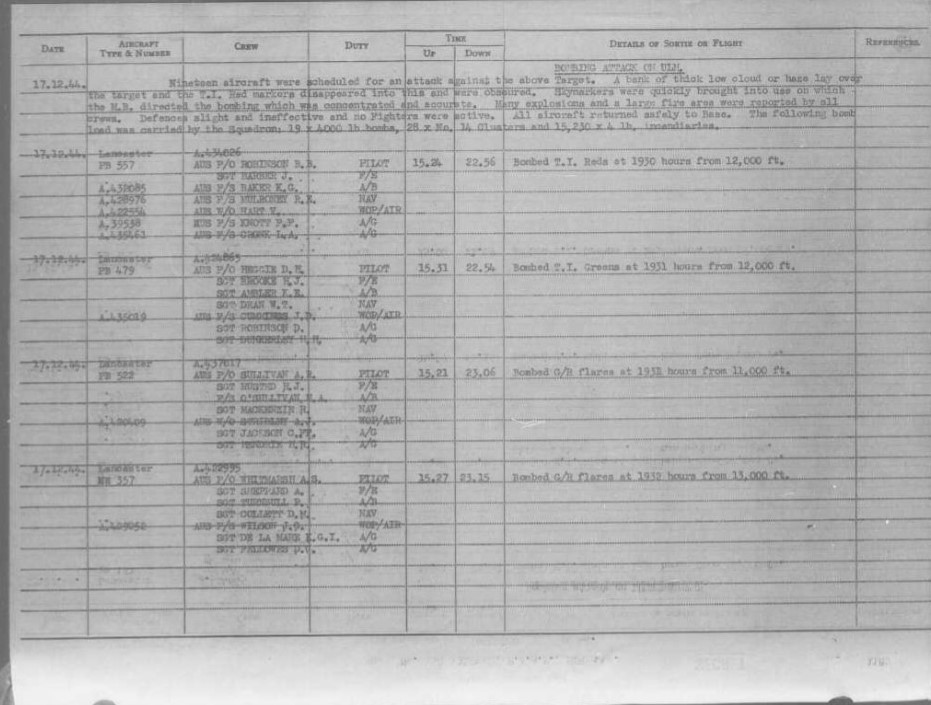 DATE AIRCRAFT TYPE & NUMBER CREW DUTY TIME UP DOWN DETAILS OF SORTIE OR FLIGHT REFERENCES.
BOMBING ATTACK ON ULM.
17.12.44. Nineteen aircraft were scheduled for an attack against the above Target. A bank of thick low cloud or haze lay over
the target and the T.I. Red markers disappeared into this and were obscured. Skymarkers were quickly brought into use on which
the M.B. directed the bombing which was concentrated and accurate. Many explosions and a large fire area were reported by all
crews. Defences slight and ineffective and no Fighters were active. All aircraft returned safely to Base. The following bomb
load was carried by the Squadron: 19 x 4000 lb bombs, 28 x No. 14 Clusters and 15,230 x 4 lb. incendiaries.
17.12.44. Lancaster A.434026
PB 557 AUS P/O ROBINSON B.B. PILOT 15.24 22.56 Bombed T.I. Reds at 1930 hours from 12,000 ft.
SGT BARBER J. F/E
A.432085 AUS F/S BAKER K.G. A/B
A.428976 AUS F/S MULRONEY R.K. NAV
A.422554 AUS W/O HART V. WOP/AIR
A.39538 AUS F/S KNOTT P.F. A/G
A.435461 AUS F/S CRONK L.A. A/G
17.12.44. Lancaster
PB 479 AUS P/O HEGGIE D.H. PILOT 15.31 22.54 Bombed T.I. Greens at 1931 hours from 12,000 ft.
SGT BROOKE H.J. F/E
SGT AMBLER K.E. A/B
SGT DRAN W.T. NAV
A.435019 AUS F/S CUBBINS J.D. WOP/AIR
SGT ROBINSON D. A/G
SGT DUNKERLEY H.H. A/G
17.12.44. Lancaster A.437817
PB 522 AUS P/O SULLIVAN A.R. PILOT 15.21 23.06 Bombed G/R flares at 1932 hours from 11,000 ft.
SGT HUSTED H.J. F/E
F/S O'SULLIVAN A/B
SGT MACKENZIE R. NAV
AUS W/O A.J. WOP/AIR
SGT JACKSON A/G
SGT HENDRIE A/G
17.12.44. Lancaster A.422995
NN 357 AUS P/O WHITMARSH A.S. PILOT 15.27 23.15 Bombed G/R flares at 1932 hours from 13,000 ft.
SGT SHEPPARD A. F/E
SGT A/B
SGT COLLETT D.H. NAV
A.429052 AUS F/S WILSON J.D. WOP/AIR
SGT DE LA MARE K.G.I. A/G
SGT FELLOWES A/G